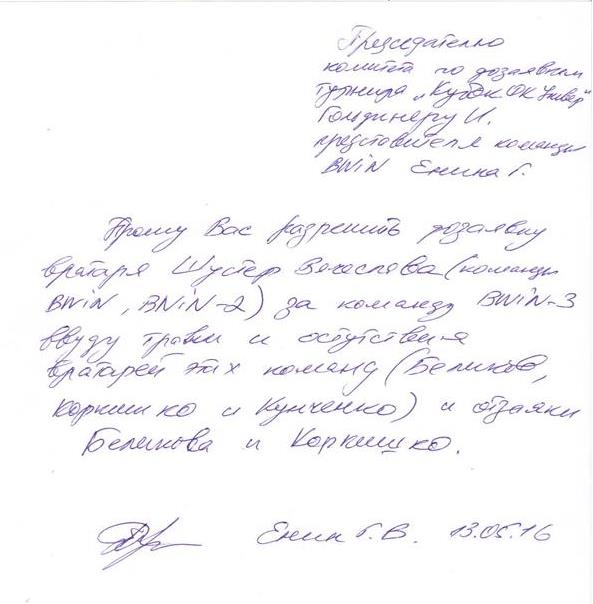 Председателю
комитета по дозаявкам
турнира „Кубок ОК Универ"
Гольдинеру И.
представителя команды
BWiN Енина Г.
Прошу Вас разрешить дозаявку
вратаря Шустер Вячеслава (команды
BWiN, BWiN-2) за команду BWiN-3
ввиду травм и отсутствия
вратарей этих команд (Беликов,
Коркишко и Кунченко) и отзаявки
Беликова и Коркишко.
Енин Г.В. 13.05.16